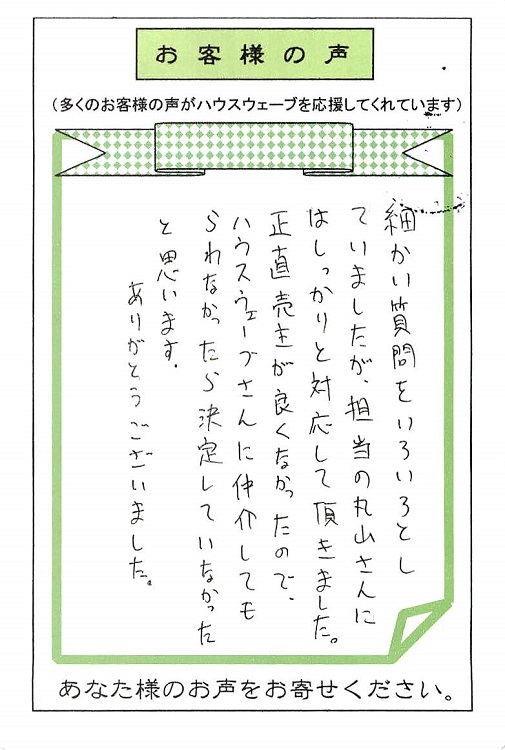 お客様の声
(多くのお客様の声がハウスウェーブを応援してくれています)
細かい質問をいろいろとし
ていましたが、担当の丸山さんに
はしっかりと対応して頂きました。
正直売主が良くなかったので、
ハウスウェーブさんに仲介しても
らわなかったら決定していなかった
と思います。
ありがとうございました。
あなた様のお声をお寄せください。